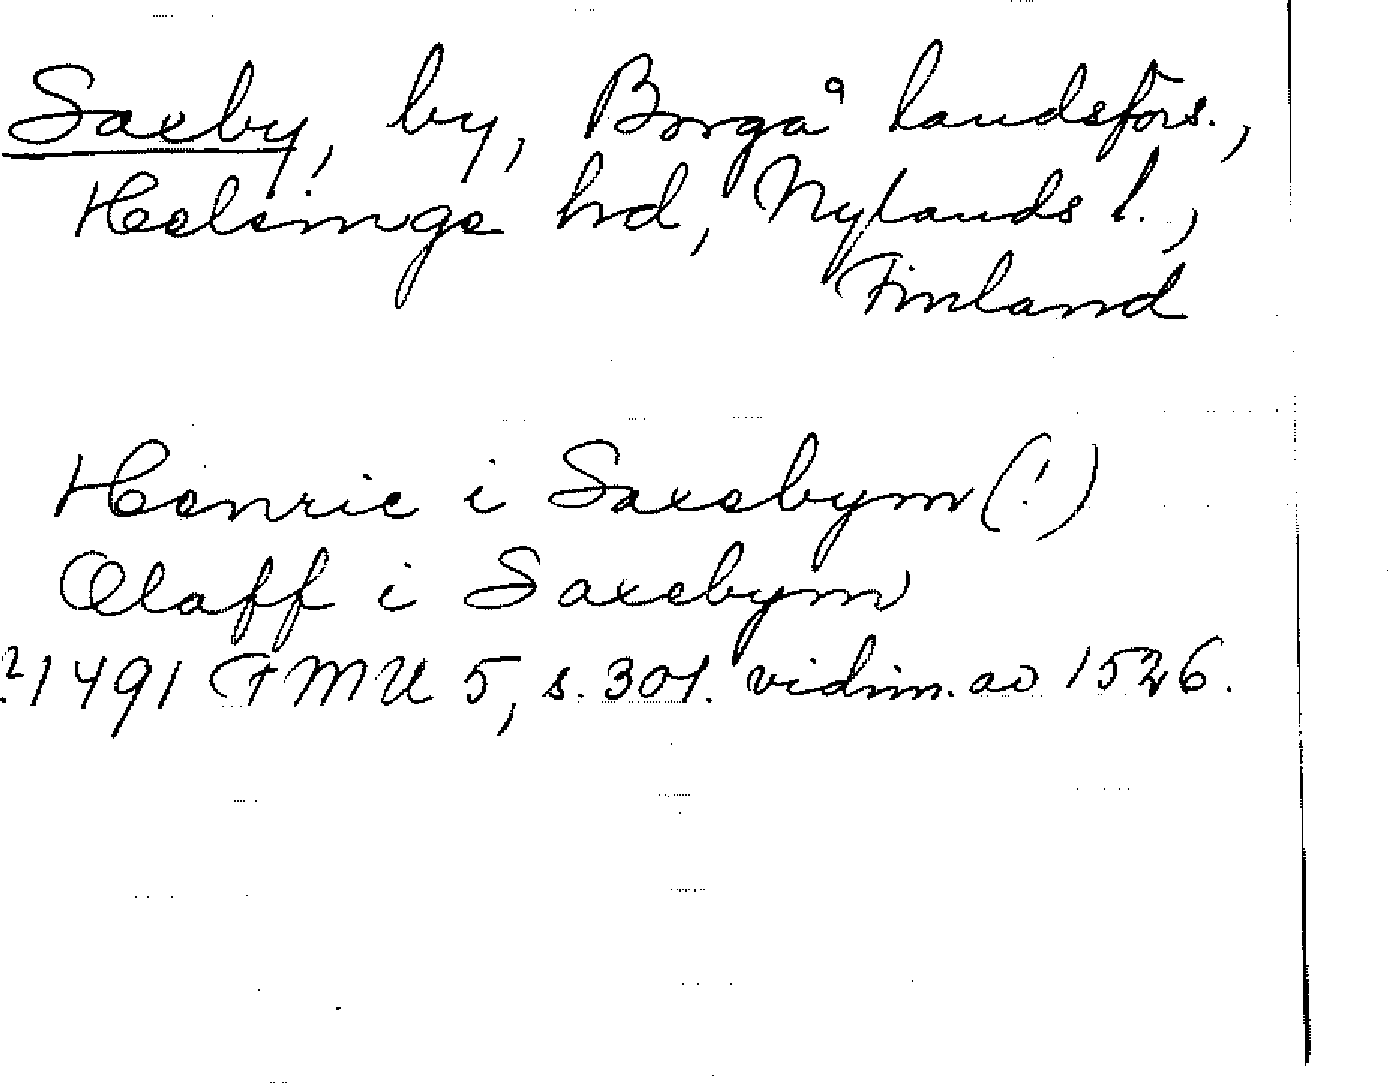 Saxby, by, Borgå landsförs.,
Helsinge hd, Nylands l.,
Finland
Henric i Saxebym (!)
Olaff i Saxebym
?1491 FMU 5, s. 301. vidim. ao 1526.